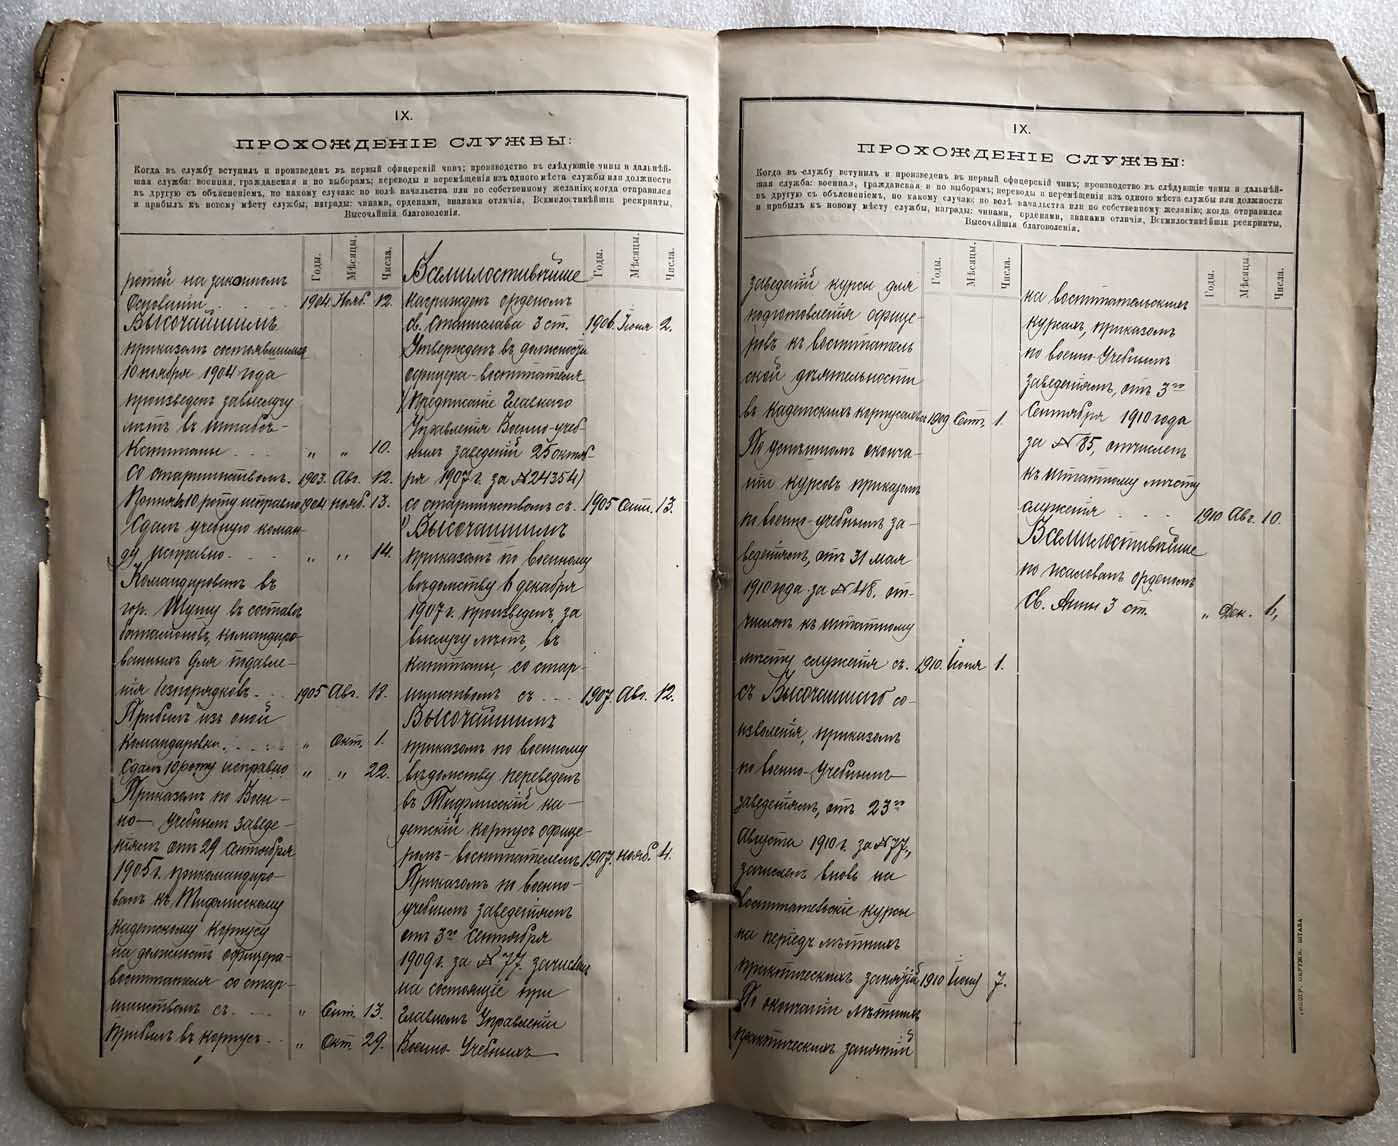 IX.
ПРОХОЖДЕНІЕ СЛУЖБЫ:
Когда въ службу вступилъ и произведенъ въ первый офицерскій чинъ; производство въ слѣдующіе чины и дальнѣй-
шая служба: военная, гражданская и по выборамъ; переводы и перемѣщенія изъ одного мѣста службы или должности
въ другую съ объясненіемъ, по какому случаю: по волѣ начальства или по собственному желанію; когда отправился
и прибылъ къ новому мѣсту службы, награды: чинами, орденами, знаками отличія, Всемилостивѣйшіе рескрипты,
Высочайшія благоволенія.
Годы. Мѣсяцы. Числа.
ротой на законномъ
Основаніи . . . . 1904 Нояб. 12.
Высочайшимъ
приказомъ состоявшимся
10 ноября 1904 года
произведенъ за выслугу
лѣтъ въ Штабсъ-
Капитаны . . . „ „ 10.
со старшинствомъ. 1903. Авг. 12.
Принялъ 10 роту исправно 1904 нояб. 13.
Сдалъ учебную коман-
ду исправно . . . „ „ 14.
Командированъ въ
гор. Шушу въ составѣ
баталіоновъ, командиро-
ванныхъ для подавле-
нія безпорядковъ . . . 1905 Авг.
Прибылъ изъ оной
командировки . . . . „ Окт. 1.
Сдалъ 10 роту исправно „ „ 22.
Приказомъ по Воен-
но- учебнымъ заведе-
ніямъ отъ 29 сентября
1905 г. прикомандиро-
ванъ къ Тифлисскому
кадетскому корпусу
на должность офицера-
воспитателя со стар-
шинствомъ съ . . . „ Сент. 13.
Прибылъ въ корпусъ . . „ Окт. 29.
Годы. Мѣсяцы. Числа.
Всемилостивѣйше
награжденъ орденомъ
св. Станислава 3 ст. 1906. Іюня 2.
Утвержденъ въ должности
офицера-воспитателя
(Предписаніе Главнаго
Управленія Военно-учеб-
ныхъ заведеній 25 октяб-
ря 1907 г. за № 24354)
со старшинствомъ съ . 1905 Сент. 13.
Высочайшимъ
приказомъ по военному
вѣдомству 6 декабря
1907 г. произведенъ, за
выслугу лѣтъ, въ
капитаны, со стар-
шинствомъ съ . . . 1907. Авг. 12.
Высочайшимъ
приказомъ по военному
вѣдомству переведенъ
въ Тифлисскій ка-
детскій корпусъ офице-
ромъ-воспитателемъ 1907. нояб. 4.
Приказомъ по военно-
учебнымъ заведеніямъ
отъ 3го сентября
1909 г. за № 77. зачисленъ
на состоящіе при
Главномъ Управленіи
Военно- Учебныхъ
IX.
ПРОХОЖДЕНІЕ СЛУЖБЫ:
Когда въ службу вступилъ и произведенъ въ первый офицерскій чинъ; производство въ слѣдующіе чины и дальнѣй-
шая служба: военная, гражданская и по выборамъ; переводы и перемѣщенія изъ одного мѣста службы или должности
въ другую съ объясненіемъ, по какому случаю: по волѣ начальства или по собственному желанію; когда отправился
и прибылъ къ новому мѣсту службы, награды: чинами, орденами, знаками отличія, Всемилостивѣйшіе рескрипты,
Высочайшія благоволенія.
Годы. Мѣсяцы. Числа.
заведеній курсы для
подготовленія офице-
ровъ къ воспитатель
ской дѣятельности
въ кадетскихъ корпусахъ 1909 Сент. 1.
По успѣшномъ оконча-
ніи курсовъ приказомъ
по военно-учебнымъ за-
веденіямъ, отъ 31 мая
1910 года за № 48. от-
численъ къ штатному
мѣсту служенія съ . 1910. Іюня 1.
съ Высочайшаго со-
изволенія, приказомъ
по военно-учебнымъ
заведеніямъ, отъ 23го
Августа 1910 г. за № 77,
зачисленъ вновь на
воспитательскіе курсы
на періодъ лѣтнихъ
практическихъ занятій 1910 Іюня 7.
По окончаніи лѣтнихъ
практическихъ занятій
Годы. Мѣсяцы. Числа.
на воспитательскихъ
курсахъ, приказомъ
по военно-учебнымъ
заведеніямъ, отъ 3го
Сентября 1910 года
за № 85, отчисленъ
къ штатному мѣсту
служенія . . . . 1910 Авг. 10.
Всемилостивѣйше
пожалованъ орденомъ
Св. Анны 3 ст. „ Дек. 6,
ТИПОГР. ОКРУЖН. ШТАБА